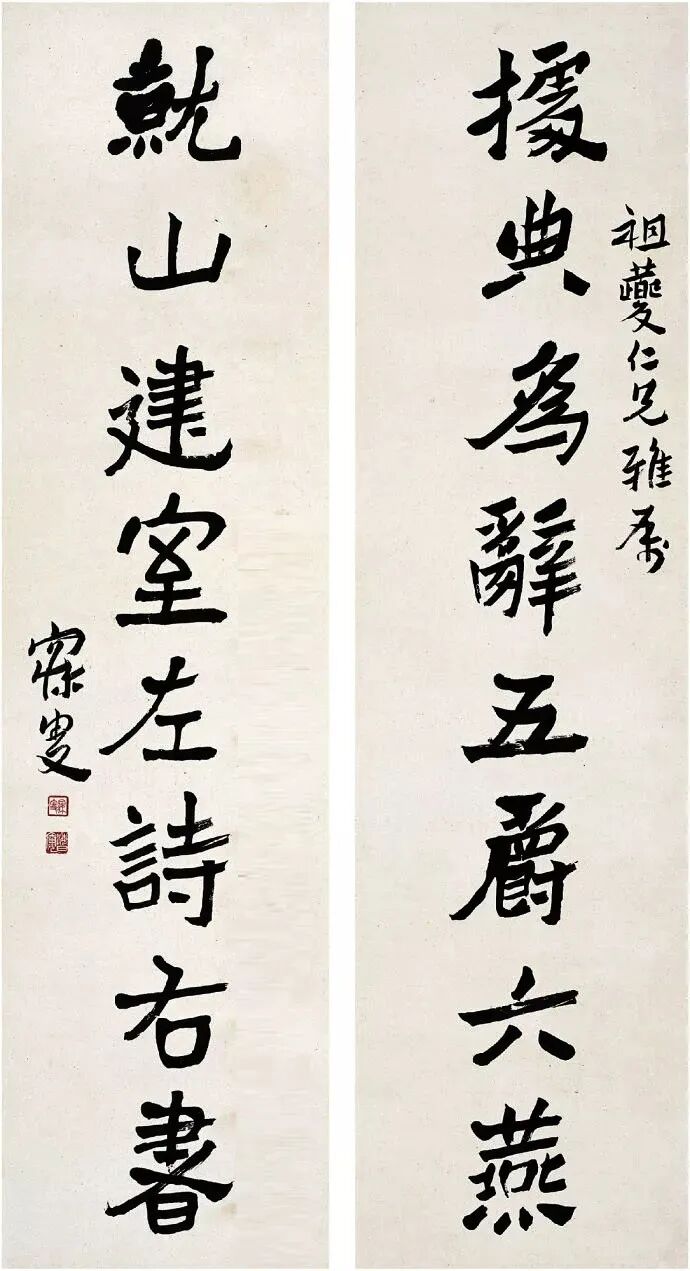 祖夔仁兄雅属
據典為辭五爵六燕
就山建室左詩右書
寐叟